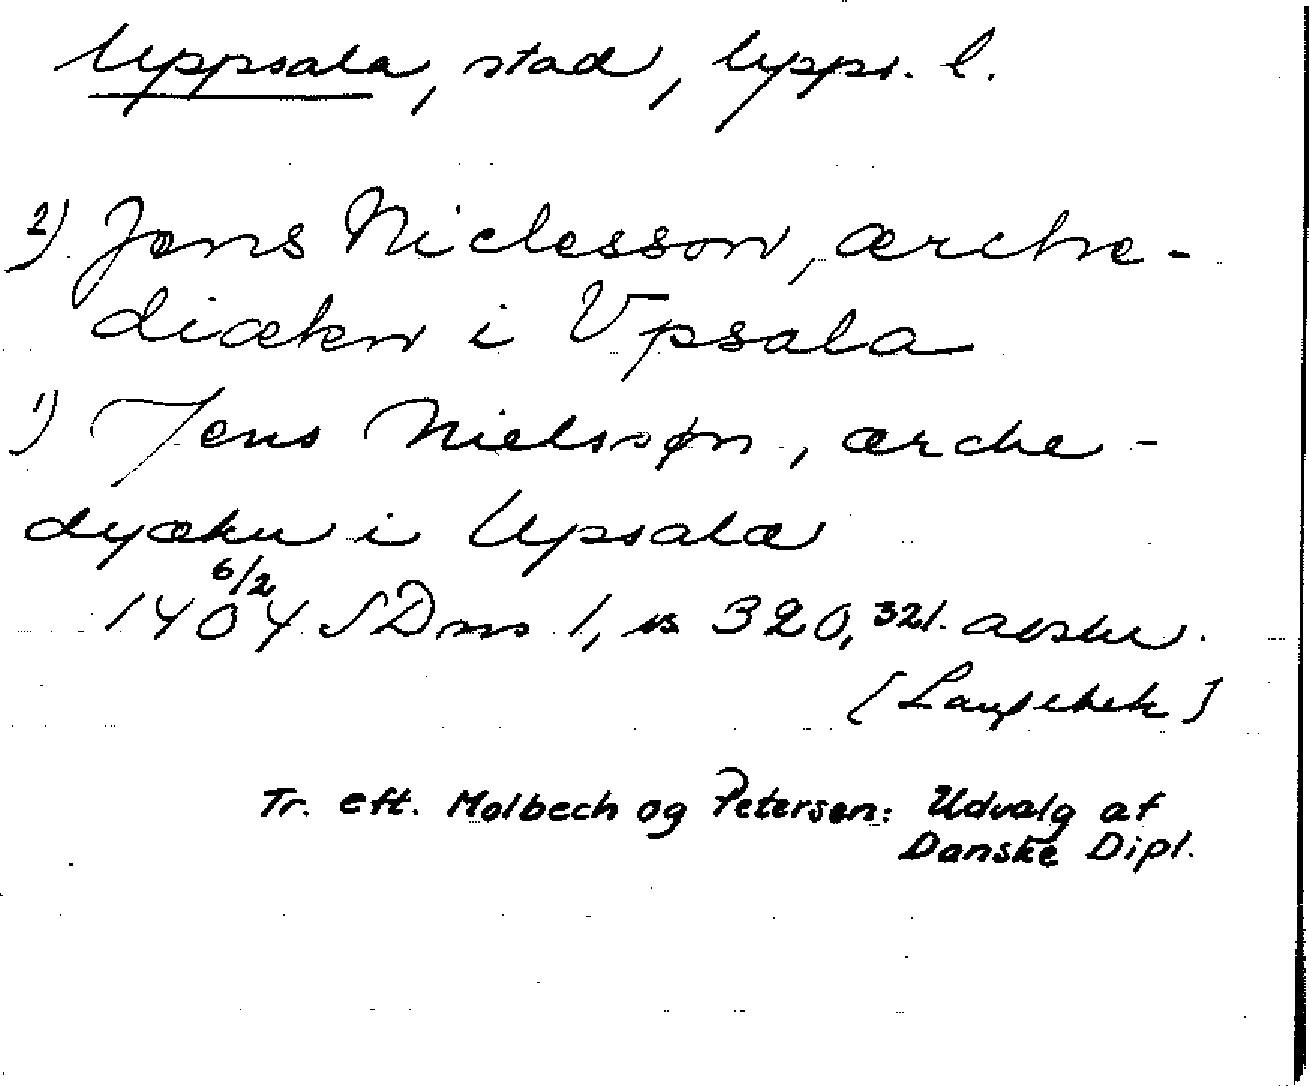 Uppsala, stad, Upps. l.
2) Jøns Niclesson, ærche-
diækn i Vpsala
1) Jens Nielssøn, ærche-
dyækn i Upsala
6/2
1404 SDns 1, s 320, 321. avskr.
[Langebek]
Tr. eft. Molbech og Petersen: Udvalg af
Danske Dipl.